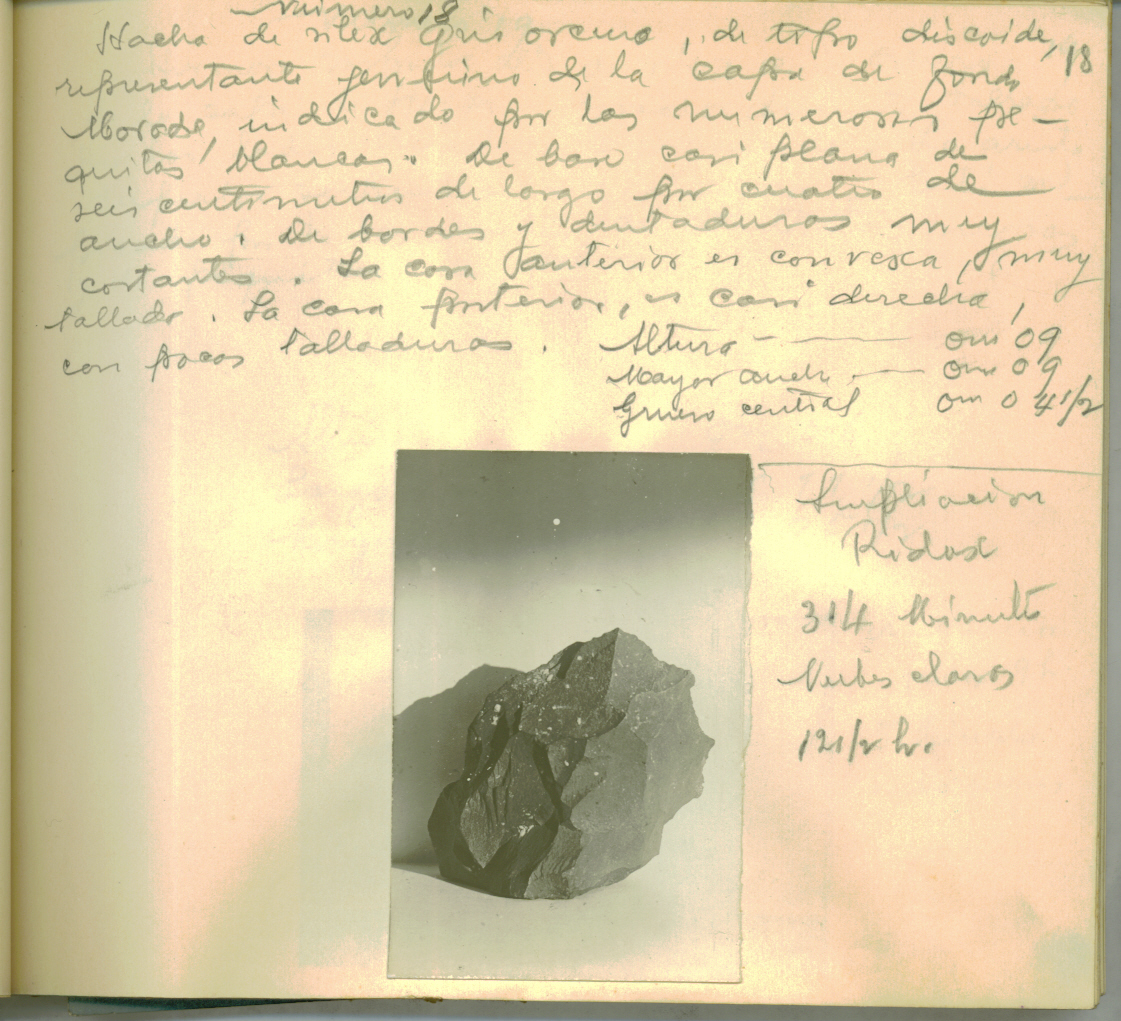 Número 18
Hacha de silex gris oscuro, de tipo discoide, 18
representante genuino de la capa de fondo
Morode, indicado por las numerosas pe-
quitas blancas. De base casi plana de
seis centimetros de largo por cuatro de
ancho. De bordes y dentaduras muy
cortantes. La cara anterior es convexa, muy
tallada. La cara posterior, es casi derecha,
con pocas talladuras.
Altura - 0m 09
Mayor ancho - 0m 09
Grueso central 0m 0 4 1/2
Ampliacion
Ridax
3/4 Minuto
Nubes claras
12 1/2 h.